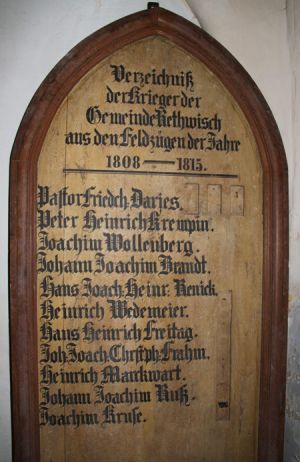 Verzeichniß
der Krieger der
Gemeinde Rethwisch
aus den Feldzügen der Jahre
1808 — 1815.
Pastor Friedch. Darjes.
Peter Heinrich Krempin.
Joachim Wollenberg.
Johann Joachim Brandt.
Hans Joach. Heinr. Renick.
Heinrich Wedemeier.
Hans Heinrich Freitag.
Joh. Joach. Chrstph. Frahm.
Heinrich Marckwart.
Johann Joachim Ruß.
Joachim Kruse.